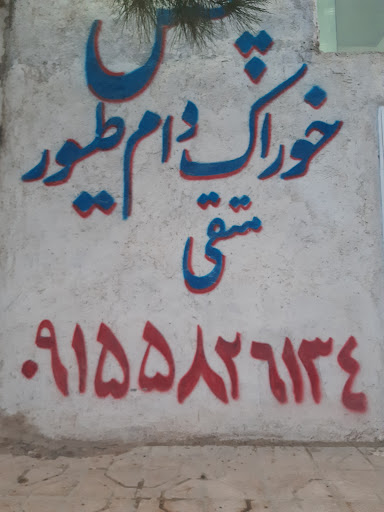 خوراک دام طیور
متقی
۰۹۱۵۵۸۲۶۱۳۴